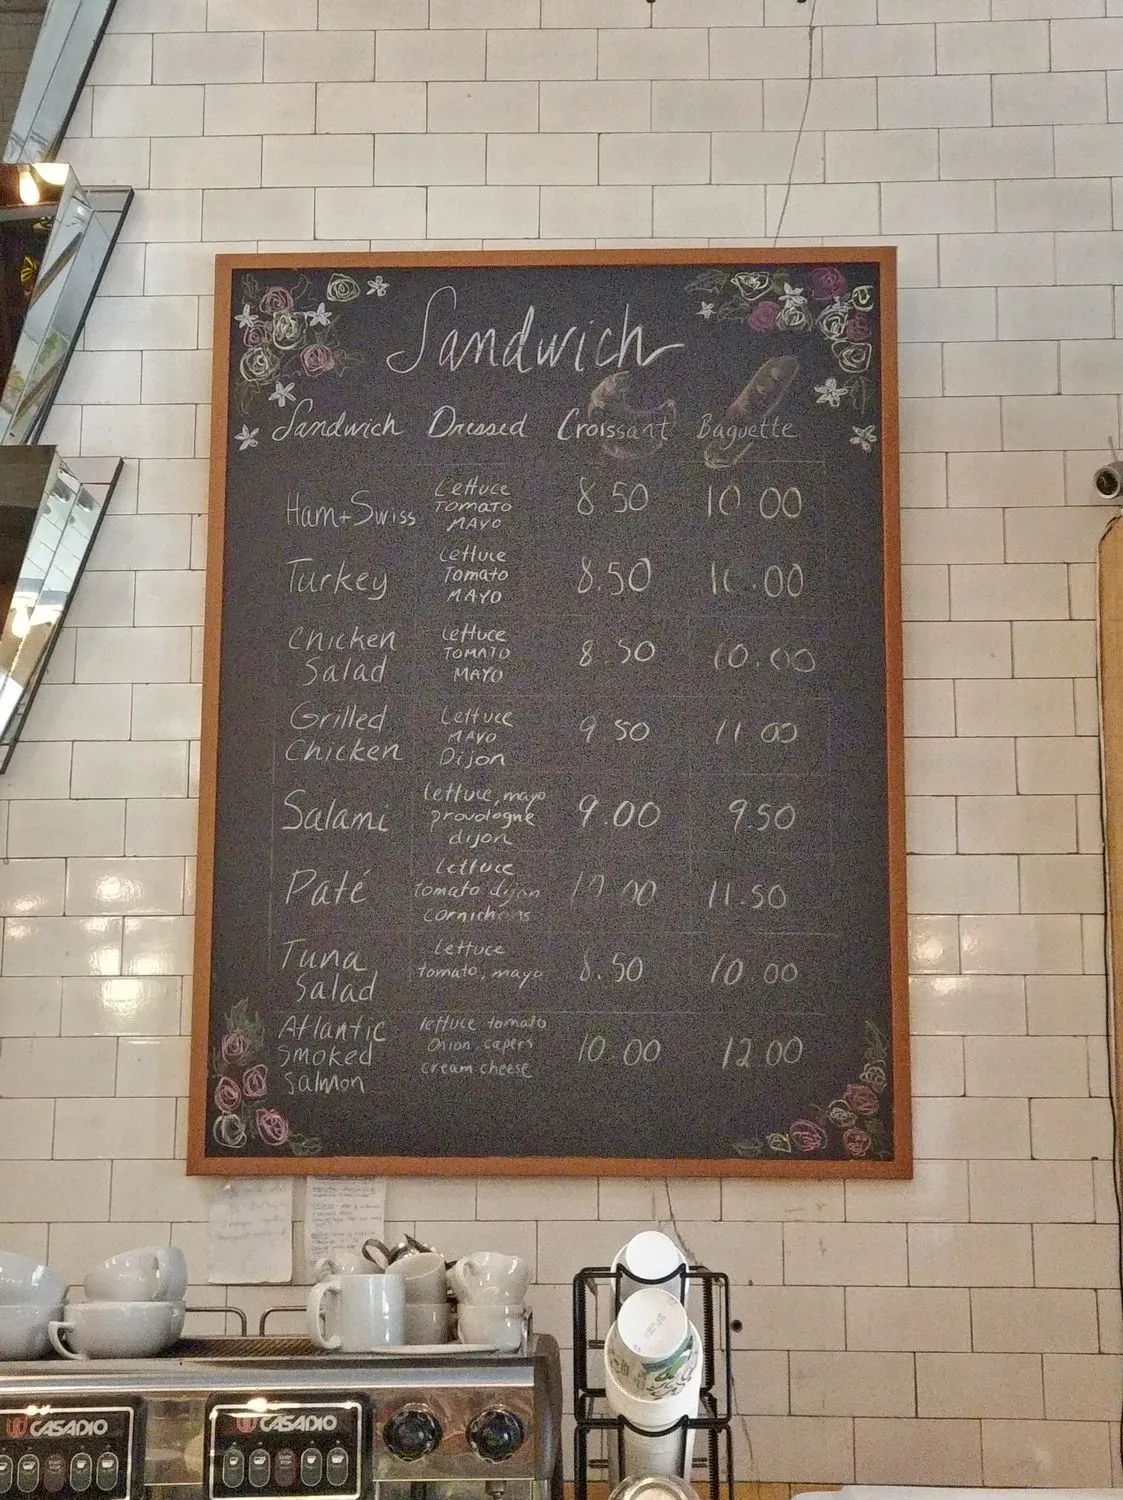 Sandwich
Sandwich Dressed Croissant Baguette
Ham+Swiss Lettuce Tomato MAYO 8.50 10.00
Turkey Lettuce Tomato MAYO 8.50 .00
Chicken Salad Lettuce TOMATO MAYO 8.50 10.00
Grilled Chicken Lettuce MAYO Dijon 9 50 11 00
Salami lettuce, mayo provologne dijon 9.00 9.50
Paté Lettuce tomato dijon cornichons 11.50
Tuna Salad lettuce tomato, mayo 8.50 10.00
Atlantic Smoked Salmon lettuce tomato onion, capers cream cheese 10.00 12.00
CASADIO
CASADIO